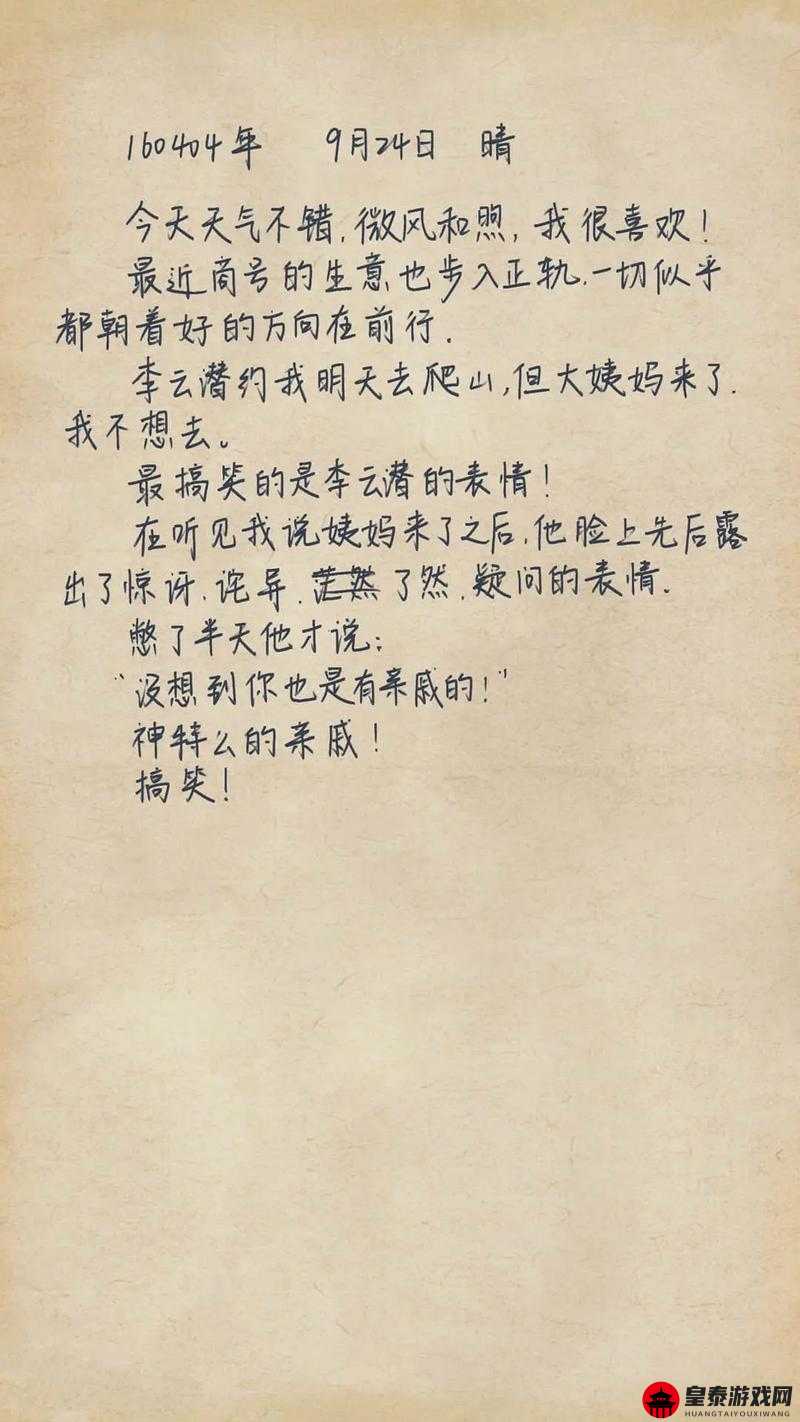 160404年 9月24日 晴
今天天气不错,微风和煦,我很喜欢!
最近商号的生意也步入正轨.一切似乎
都朝着好的方向在前行.
李云潜约我明天去爬山,但大姨妈来了.
我不想去。
最搞笑的是李云潜的表情!
在听见我说姨妈来了之后,他脸上先后露
出了惊讶.诧异.茫然了然.疑问的表情.
憋了半天他才说:
"没想到你也是有亲戚的!"
神特么的亲戚!
搞笑!
皇泰游戏网
HUANGTAIYOUXIWANG